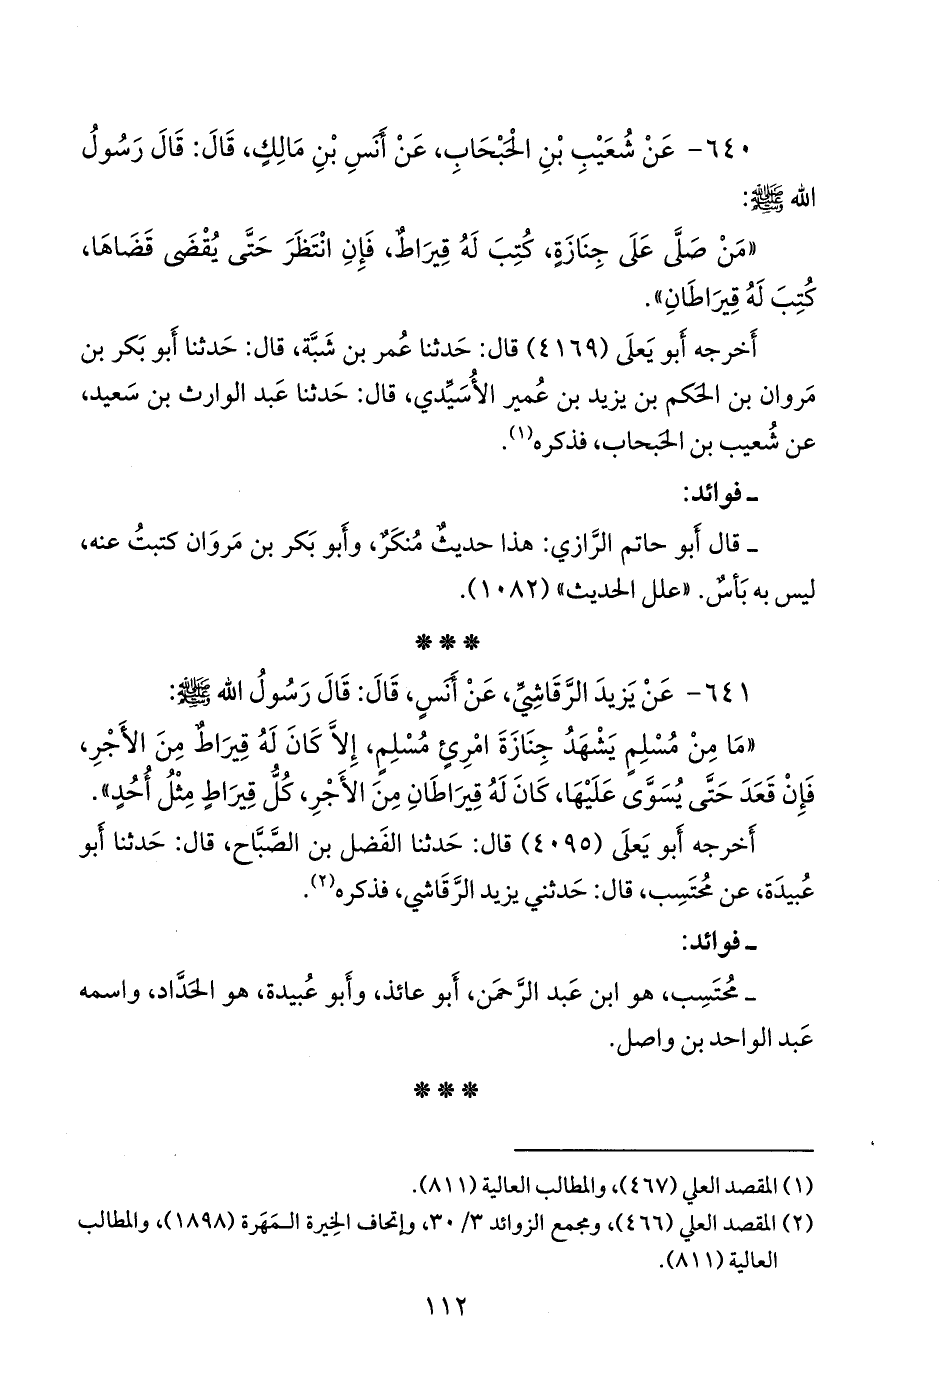 ٦٤٠- عَنْ شُعَيْبِ بْنِ الْحَبْحَابِ، عَنْ أَنَسِ بْنِ مَالِكٍ، قَالَ: قَالَ رَسُولُ
الله ﷺ:
«مَنْ صَلَّى عَلَى جِنَازَةٍ، كُتِبَ لَهُ قِيرَاطٌ، فَإِنِ انْتَظَرَ حَتَّى يُقْضَى قَضَاهَا،
كُتِبَ لَهُ قِيرَاطَانِ».
أَخرجه أَبو يَعلَى (٤١٦٩) قال: حَدثنا عُمر بن شَبَّة، قال: حَدثنا أَبو بَكر بن
مَروان بن الحَكم بن يزيد بن عُمير الأُسَيِّدي، قال: حَدثنا عَبد الوارث بن سَعيد،
عن شُعيب بن الحَبحاب، فذكره(١).
ـ فوائد:
ـ قال أَبو حاتم الرَّازي: هذا حديثٌ مُنكَرٌ، وأَبو بَكر بن مَروَان كتبتُ عنه،
ليس به بَأسٌ. «علل الحديث» (١٠٨٢).
* * *
٦٤١- عَنْ يَزِيدَ الرَّقَاشِيِّ، عَنْ أَنَسٍ، قَالَ: قَالَ رَسُولُ الله ﷺ:
«مَا مِنْ مُسْلِمٍ يَشْهَدُ جِنَازَةَ امْرِئٍ مُسْلِمٍ، إِلاَّ كَانَ لَهُ قِيرَاطٌ مِنَ الأَجْرِ،
فَإِنْ قَعَدَ حَتَّى يُسَوَّى عَلَيْهَا، كَانَ لَهُ قِيرَاطَانِ مِنَ الأَجْرِ، كُلُّ قِيرَاطٍ مِثْلُ أُحُدٍ».
أَخرجه أَبو يَعلَى (٤٠٩٥) قال: حَدثنا الفَضل بن الصَّبَّاح، قال: حَدثنا أَبو
عُبيدَة، عن مُحتَسِب، قال: حَدثني يزيد الرَّقَاشي، فذكره(٢).
ـ فوائد:
ـ مُحتَسِب، هو ابن عَبد الرَّحمَن، أَبو عائذ، وأَبو عُبيدة، هو الحَدَّاد، واسمه
عَبد الواحد بن واصل.
* * *
(١) المقصد العلي (٤٦٧)، والمطالب العالية (٨١١).
(٢) المقصد العلي (٤٦٦)، ومجمع الزوائد ٣/ ٣٠، وإتحاف الخِيرة الـمَهَرة (١٨٩٨)، والمطالب
العالية (٨١١).
١١٢